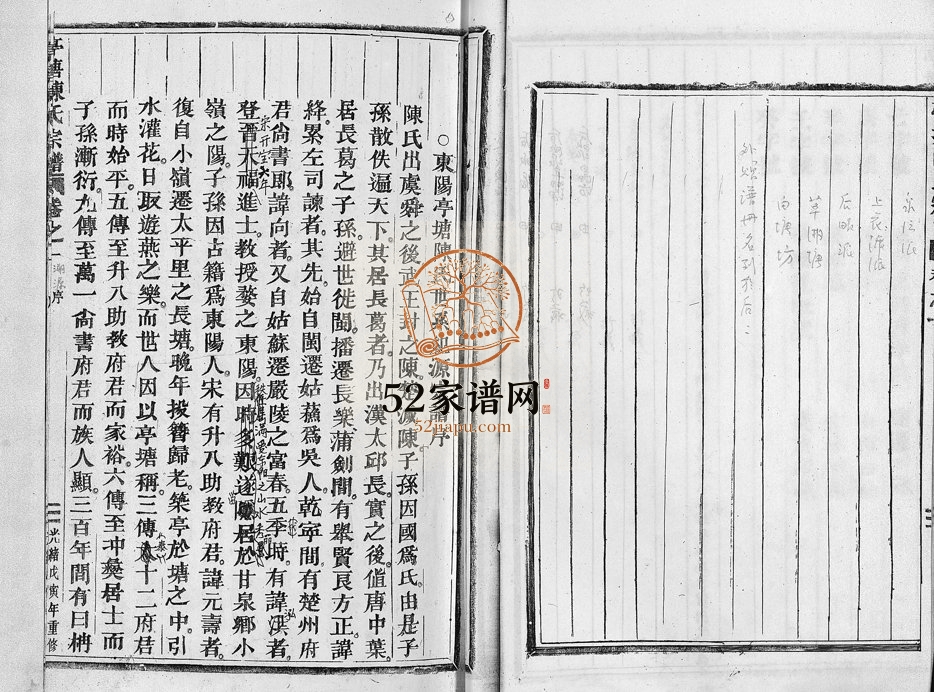 後眠派
草湖塘
白塘坊
外贻譜冊名列於后：
52家谱网
52jiapu.com
○東陽亭塘陳
源
序
陳氏出虞舜之後
封之陳
陳子孫因國爲氏由是子
孫散佚遍天下其居長葛者乃出漢太邱長實之後値唐中葉
居長葛之子孫避世徙閩播遷長樂蒲劍間有舉賢良方正諱
絳累左司諫者其先始自閩遷姑蘇爲吳人乾寕間有楚州府
君尙書郎諱向者又自姑蘇遷嚴陵之富春五季時有諱洪者
登晉天福進士教授婺之東陽因時多艱遂隱居於甘泉鄉小
嶺之陽子孫因占籍爲東陽人宋有升八助教府君諱元壽者
復自小嶺遷太平里之長塘晩年投簪歸老築亭於塘之中引
水灌花日取遊燕之樂而世人因以亭塘稱三傳
十二府君
而時始平五傳至升八助教府君而家裕六傳至中奠居士而
子孫漸衍九傳至萬一尙書府君而族人顯三百年間有曰栴
亭塘陳氏宗譜
卷之一
源序
二
光緒戊寅年重修